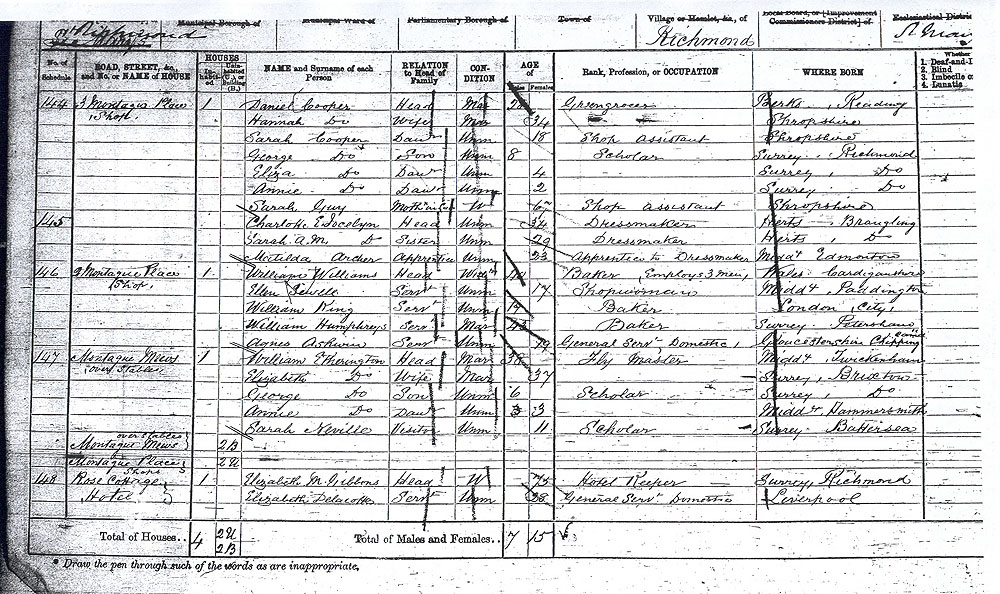 Municipal Borough of Municipal Ward of Parliamentary Borough of Town of Village or Hamlet, &c., of Local Board, or [Improvement Commissioners District] of Ecclesiastical Distri
Richmond Richmond
No. of Schedule ROAD, STREET, &c., and No. or NAME of HOUSE HOUSES Inhabited Uninhabited (U.), or Building (B.) NAME and Surname of each Person RELATION to Head of Family CONDITION AGE of Males Females Rank, Profession, or OCCUPATION WHERE BORN Whether
1. Deaf-and-D
2. Blind
3. Imbecile o
4. Lunatic
144 3 Montague Place 1 Daniel Cooper Head Mar Greengrocer Berks, Reading
Shop. Hannah Do Wife Mar 34 Shropshire
Sarah Cooper Daur Unm 18 Shop assistant Shropshire
George Do Son Unm 8 Scholar Surrey, Richmond
Eliza Do Daur Unm 4 Surrey, Do
Annie Do Daur Unm 2 Surrey Do
Sarah Guy Moth in W 67 Shop assistant Shropshire
145 Charlotte E Jocelyn Head Unm 34 Dressmaker Herts, Braughing
Sarah A.M. Do Sister Unm 29 Dressmaker Herts, Do
Matilda Archer Apprentice Unm 23 Apprentice to Dressmaker Middx Edmonton
146 2 Montague Place 1 William Williams Head Widr Baker Employs 3 men, Wales Cardiganshire
Shop. Ellen Sewell Servt Unm 17 Shopwoman Middx, Paddington
William King Servt Unm 19 Baker London, City,
William Humphreys Servt Mar 43 Baker Surrey Petersham
Agnes Askwin Servt Unm 19 General Servt Domestic, Gloucestershire Chipping
147 Montague Mews 1 William Etherington Head Mar 38 Fly Master Middx Twickenham
over Stables Elizabeth Do Wife Mar 37 Surrey, Brixton
George Do Son Unm 6 Scholar Surrey, Do
Annie Do Daur Unm 3 Middx, Hammersmith
Sarah Neville Visitor Unm 11 Scholar Surrey Battersea
over Stables
Montague Mews 2B
Montague Place 2U
Shops
148 Rose Cottage 1 Elizabeth M. Gibbons Head W 75 Hotel Keeper Surrey, Richmond
Hotel Elizabeth Servt Unm 28 General Servt Domestic Liverpool
Total of Houses.. 4 2U 2B Total of Males and Females.. 7 15
* Draw the pen through such of the words as are inappropriate.